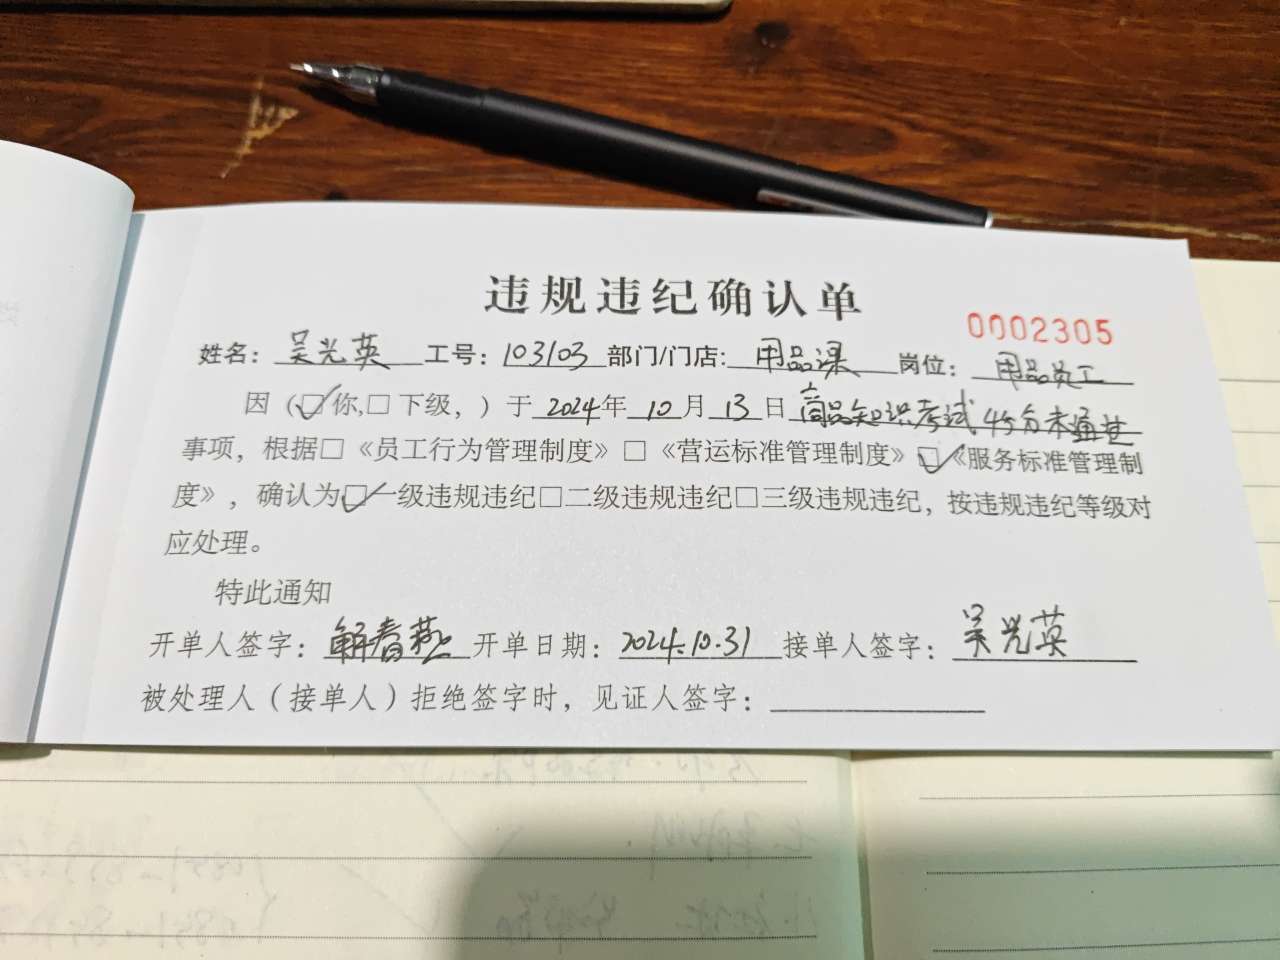 违规违纪确认单
0002305
姓名：吴光英 工号：103103 部门/门店：用品课 岗位：用品员工
因（☑你，□下级，）于2024年10月13日商品知识考试45分未通过
事项，根据□《员工行为管理制度》□《营运标准管理制度》☑《服务标准管理制
度》，确认为☑一级违规违纪□二级违规违纪□三级违规违纪，按违规违纪等级对
应处理。
特此通知
开单人签字：解春燕 开单日期：2024.10.31 接单人签字：吴光英
被处理人（接单人）拒绝签字时，见证人签字：